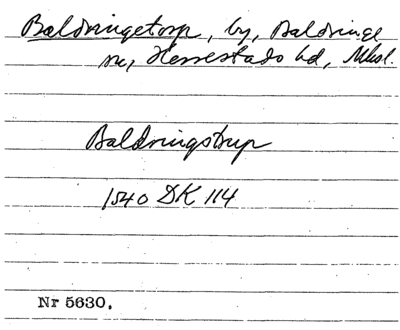 Baldringetorp, by, Baldringe
sn, Herrestads hd, Mhsl.
Baldringstrup
1540 DK 114
Nr 5630.